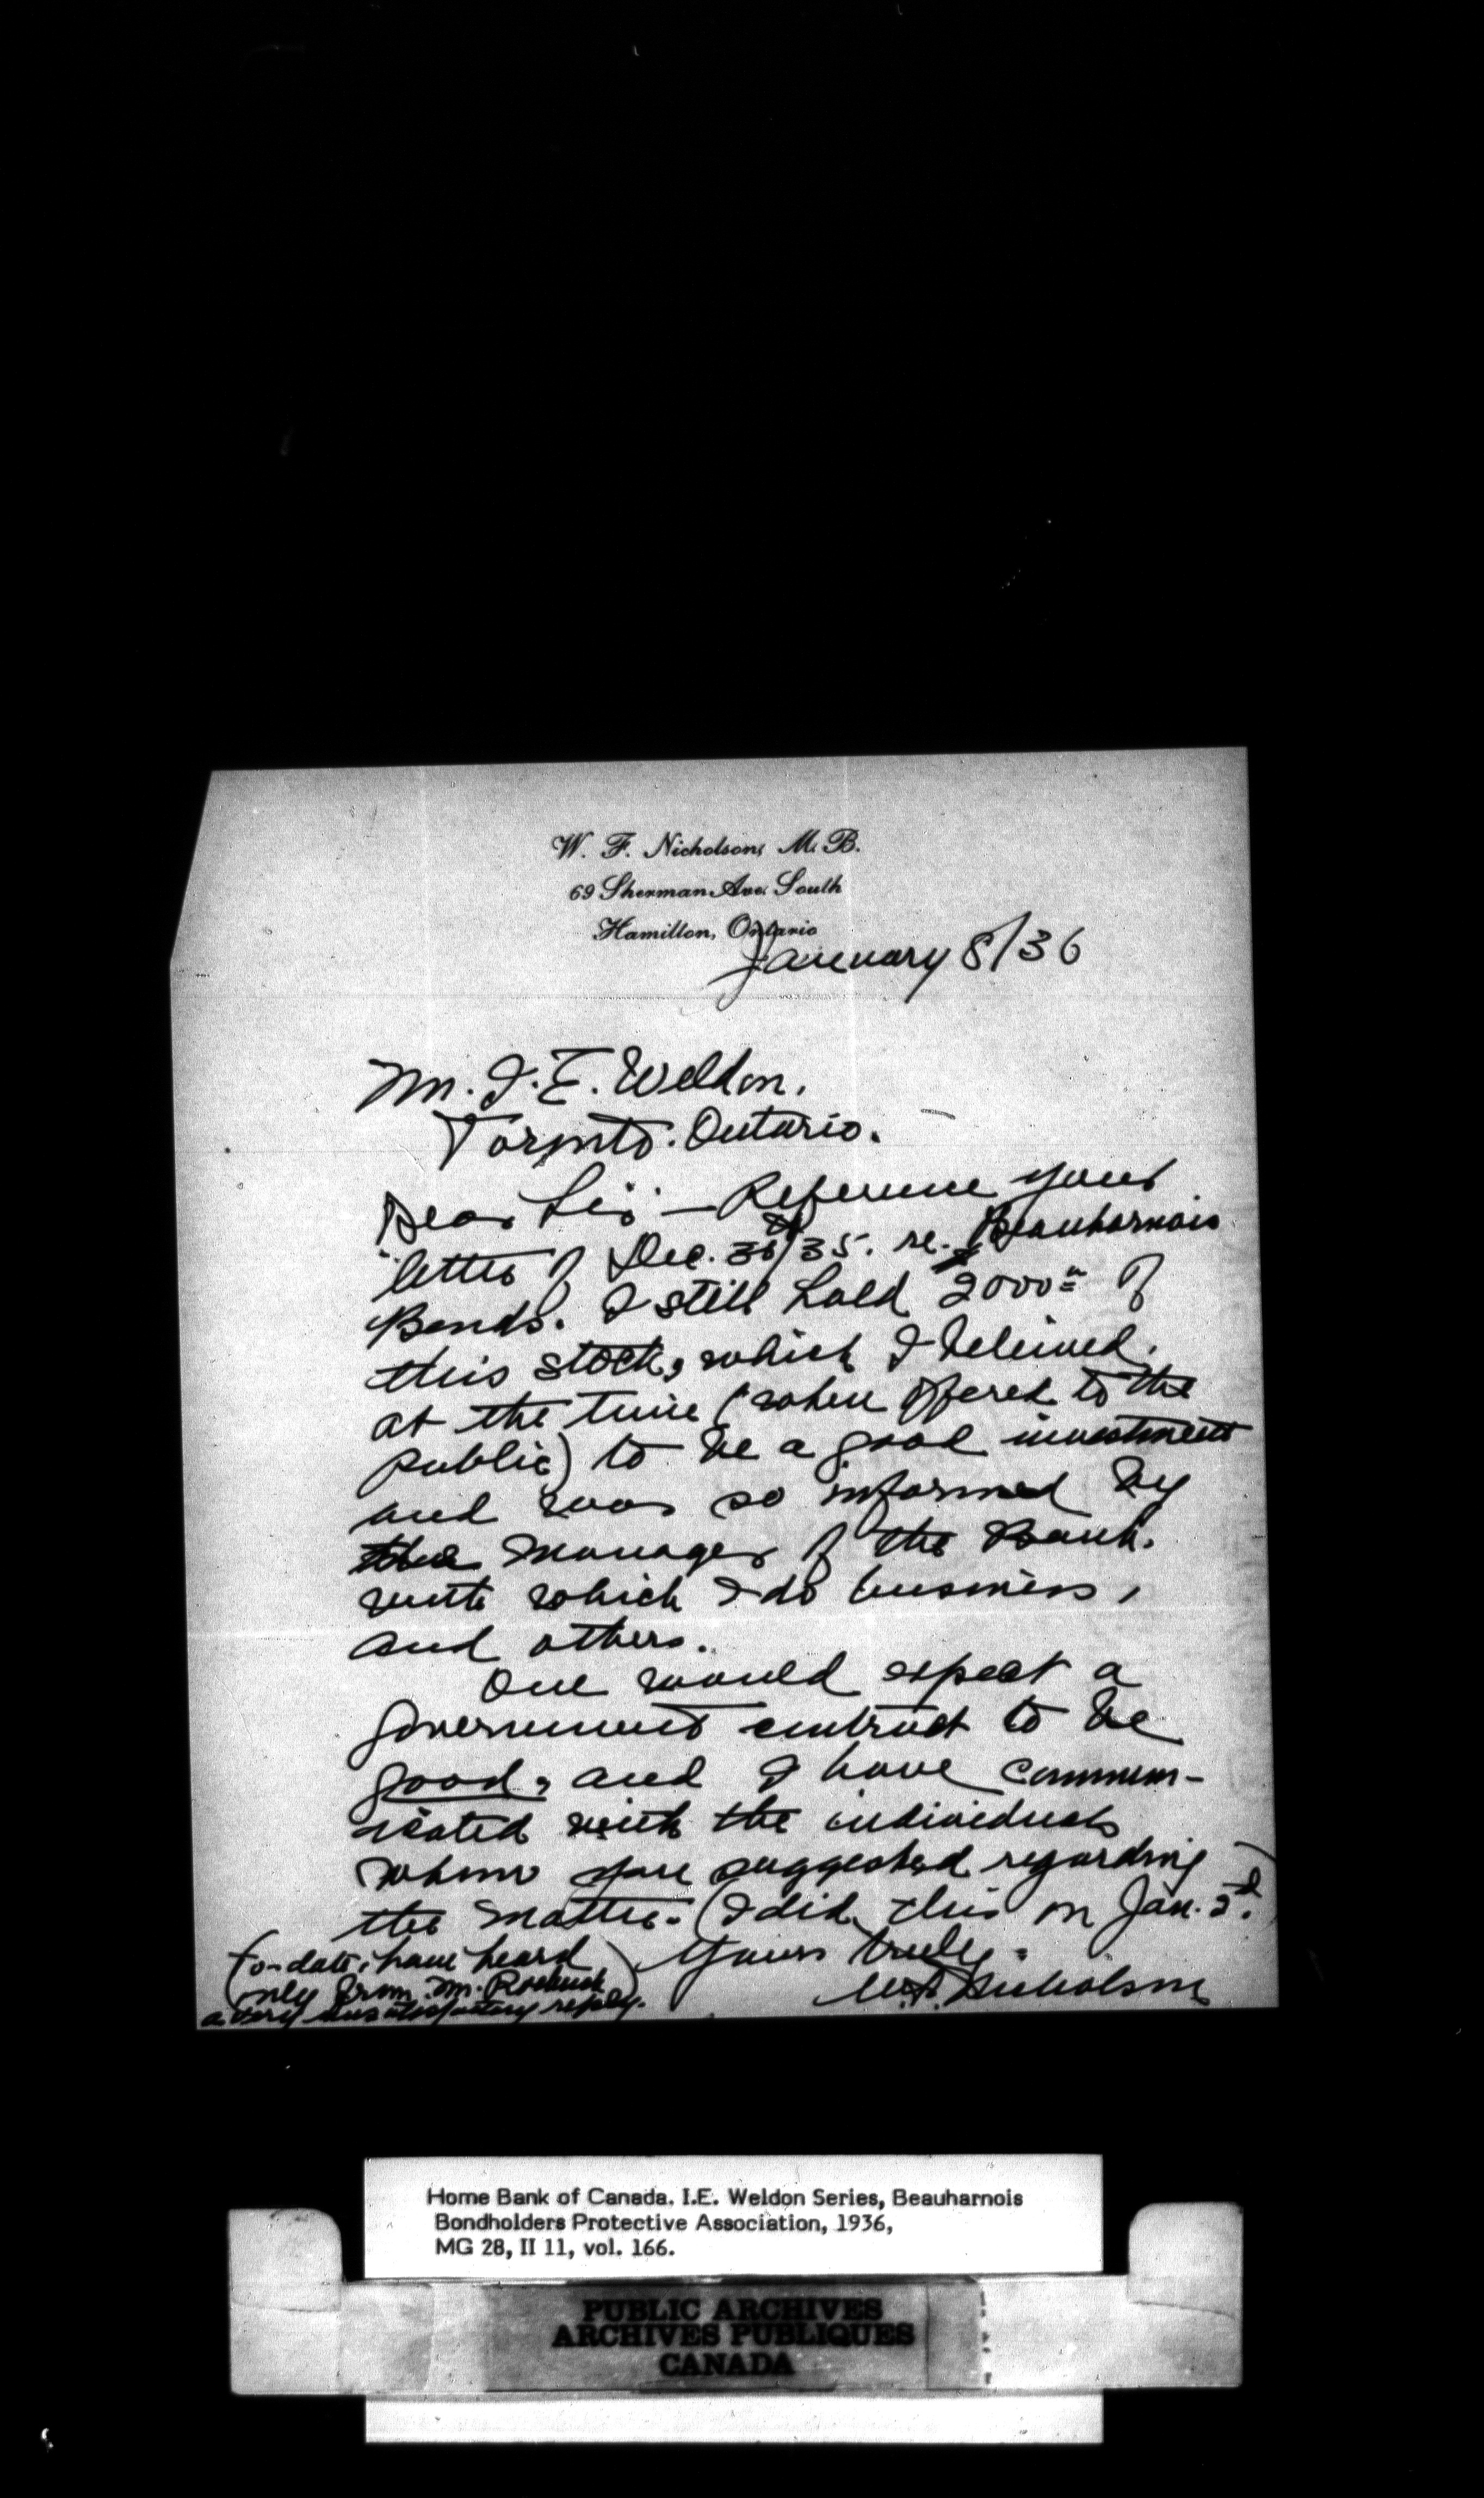 W. F. Nicholson, M. B.
69 Sherman Ave. South
Hamilton, Ontario
January 8/36
Mr. I. E. Weldon,
Toronto. Ontario.
Dear Sir: — Reference your
letter of Dec. 30th/35. re. Beauharnois
Bonds. I still hold 2000= of
this stock, which I believed,
at the time (when offered to the
public) to be a good investment
and was so informed by
the Manager of the Bank.
with which I do business,
and others.
One would expect a
government contract to be
good, and I have commun-
icated with the individuals
whom you suggested regarding
the matter. (I did this on Jan. 2d.)
Yours truly.
W.F. Nicholson
(to-date, have heard
only from Mr. Roebuck)
a very unsatisfactory reply.
Home Bank of Canada. I.E. Weldon Series, Beauharnois
Bondholders Protective Association, 1936,
MG 28, II 11, vol. 166.
PUBLIC ARCHIVES
ARCHIVES PUBLIQUES
CANADA